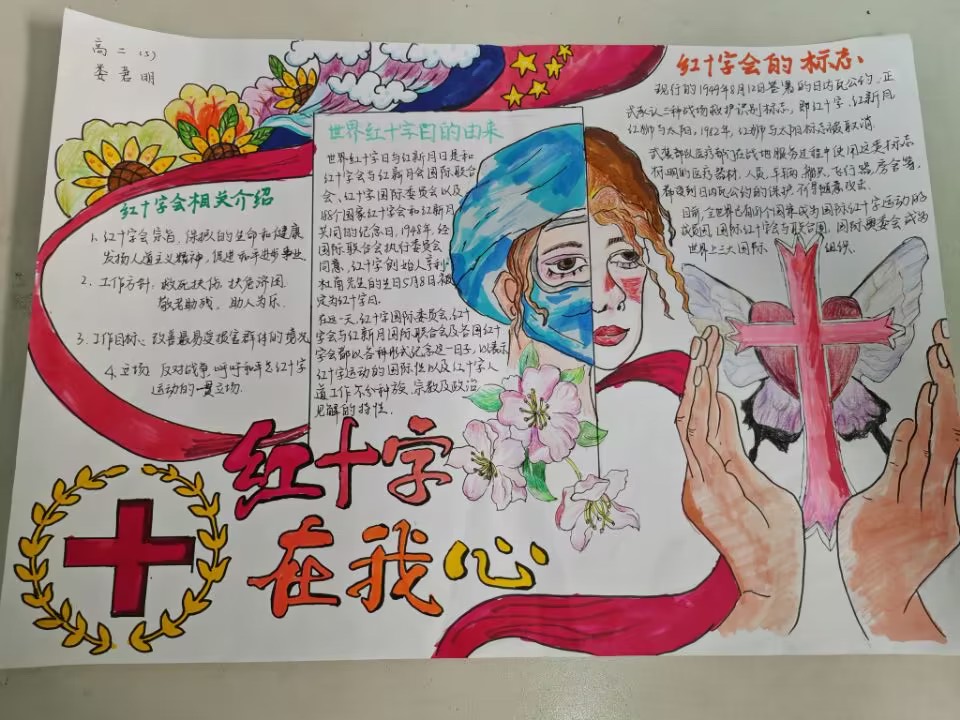 高二(5)
娄君明
红十字会相关介绍
1、红十字会宗旨:保护人的生命和健康
发扬人道主义精神,促进和平进步事业
2、工作方针:救死扶伤 扶危济困
敬老助残、助人为乐.
3、工作目标:改善最易受损害群体的境况
4、立场 反对战争呼吁和平是红十字
运动的一贯立场.
世界红十字日的由来
世界红十字日与红新月日是和
红十字会与红新月会国际联合
会、红十字国际委员会以及
188个国家红十字会和红新月
共同的纪念日,1948年,经
国际联合会执行委员会
同意,红十字创始人亨利
杜南先生的生日5月8日被
定为红十字日.
在这一天,红十字国际委员会,红十
字会与红新月国际联合会及各国红十
字会都以各种形式纪念这一日子,以表示
红十字运动的国际性以及红十字人
道工作不分种族、宗教及政治
见解的特性.
红十字会的标志、
现行的1949年8月12日签署的日内瓦公约,正
式承认三种战场救护识别标志,即红十字、红新月
红狮与太阳,1982年,红狮与太阳标志被取消.
武装部队医疗部门在战地服务过程中使用这类标志
标明的医疗器材、人员、车辆、船只、飞行器、房舍等,
都受到日内瓦公约的保护
目前,全世界已有 个国家成为国际红十字运动的
成员国,国际红十字会与联合国、国际奥委会成为
世界上三大国际 组织.
红十字
在我心